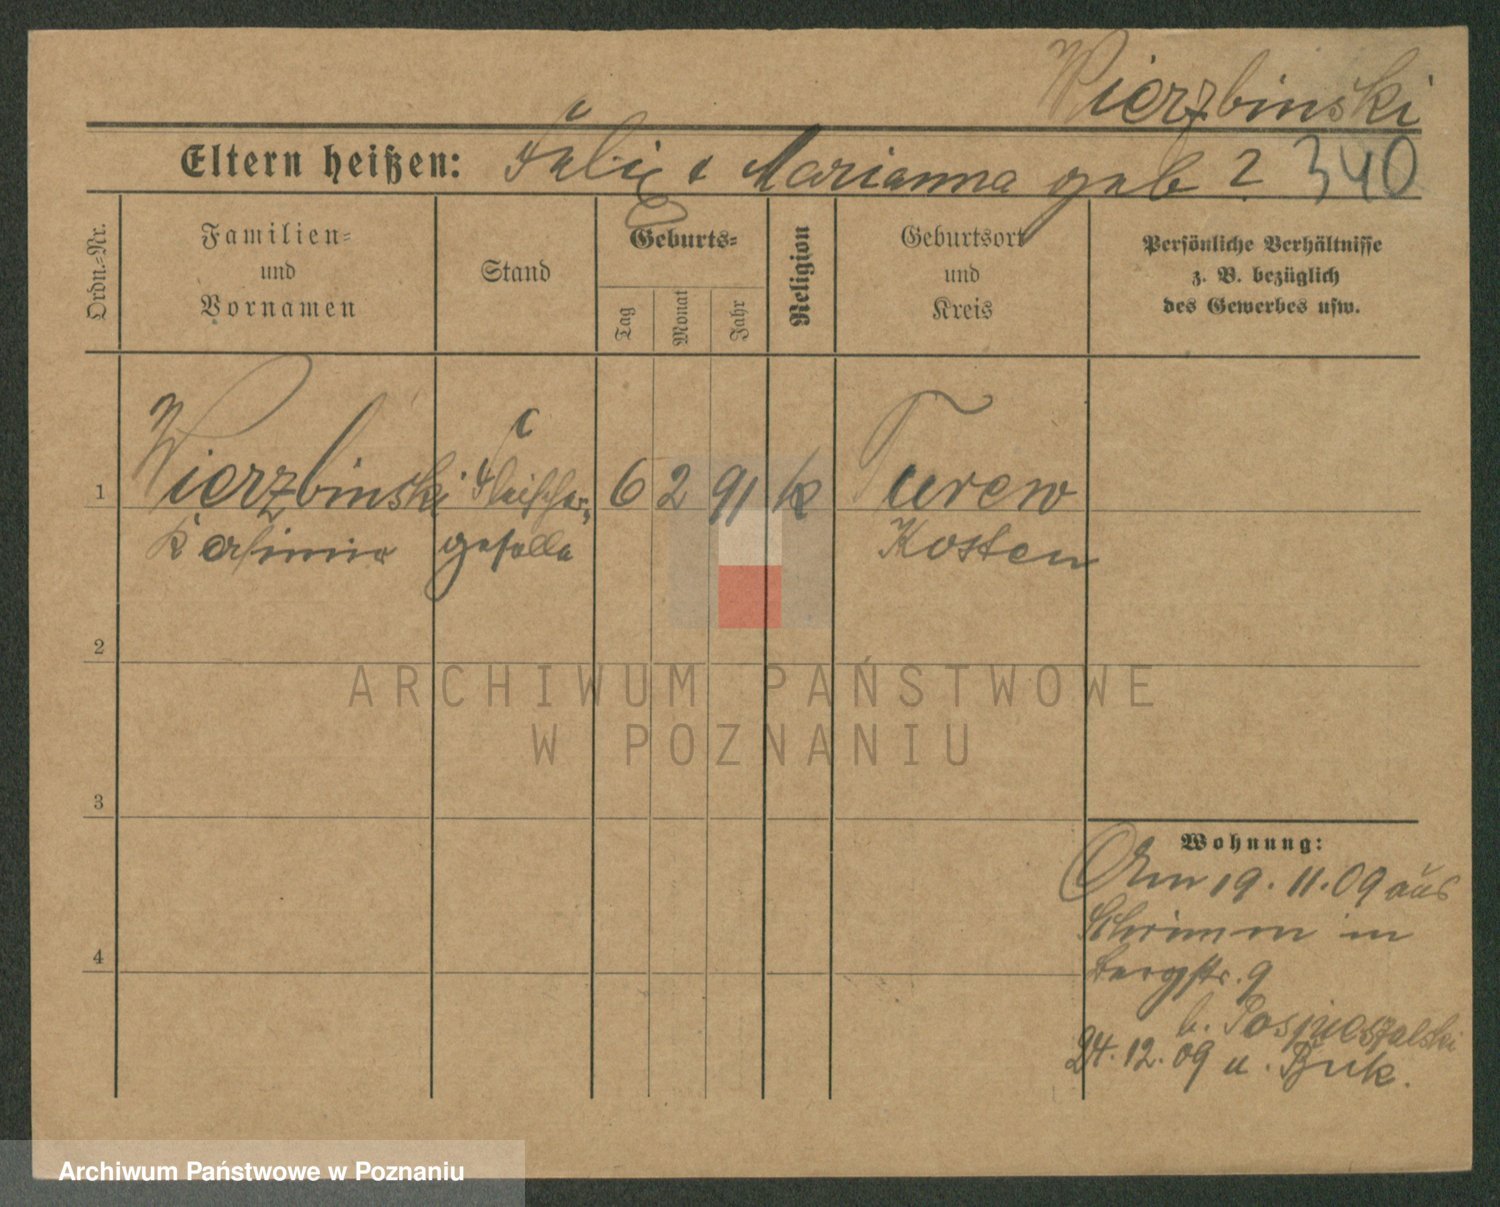 Wierzbinski
Eltern heißen: Felix & Marianna geb ? 340
Ordn.-Nr.
Familien-
und
Vornamen
Stand
Geburts-
Tag
Monat
Jahr
Religion
Geburtsort
und
Kreis
Persönliche Verhältnisse
z. B. bezüglich
des Gewerbes usw.
1 Wierzbinski Fleischer, 6 2 91 k Turew
Kasimir geselle Kosten
2
ARCHIWUM PAŃSTWOWE
W POZNANIU
3
Wohnung:
Am 19.11.09 aus
Schrimm in
4
Bergstr. 9
b. Pospieszalski
24.12.09 n. Buk.
Archiwum Państwowe w Poznaniu